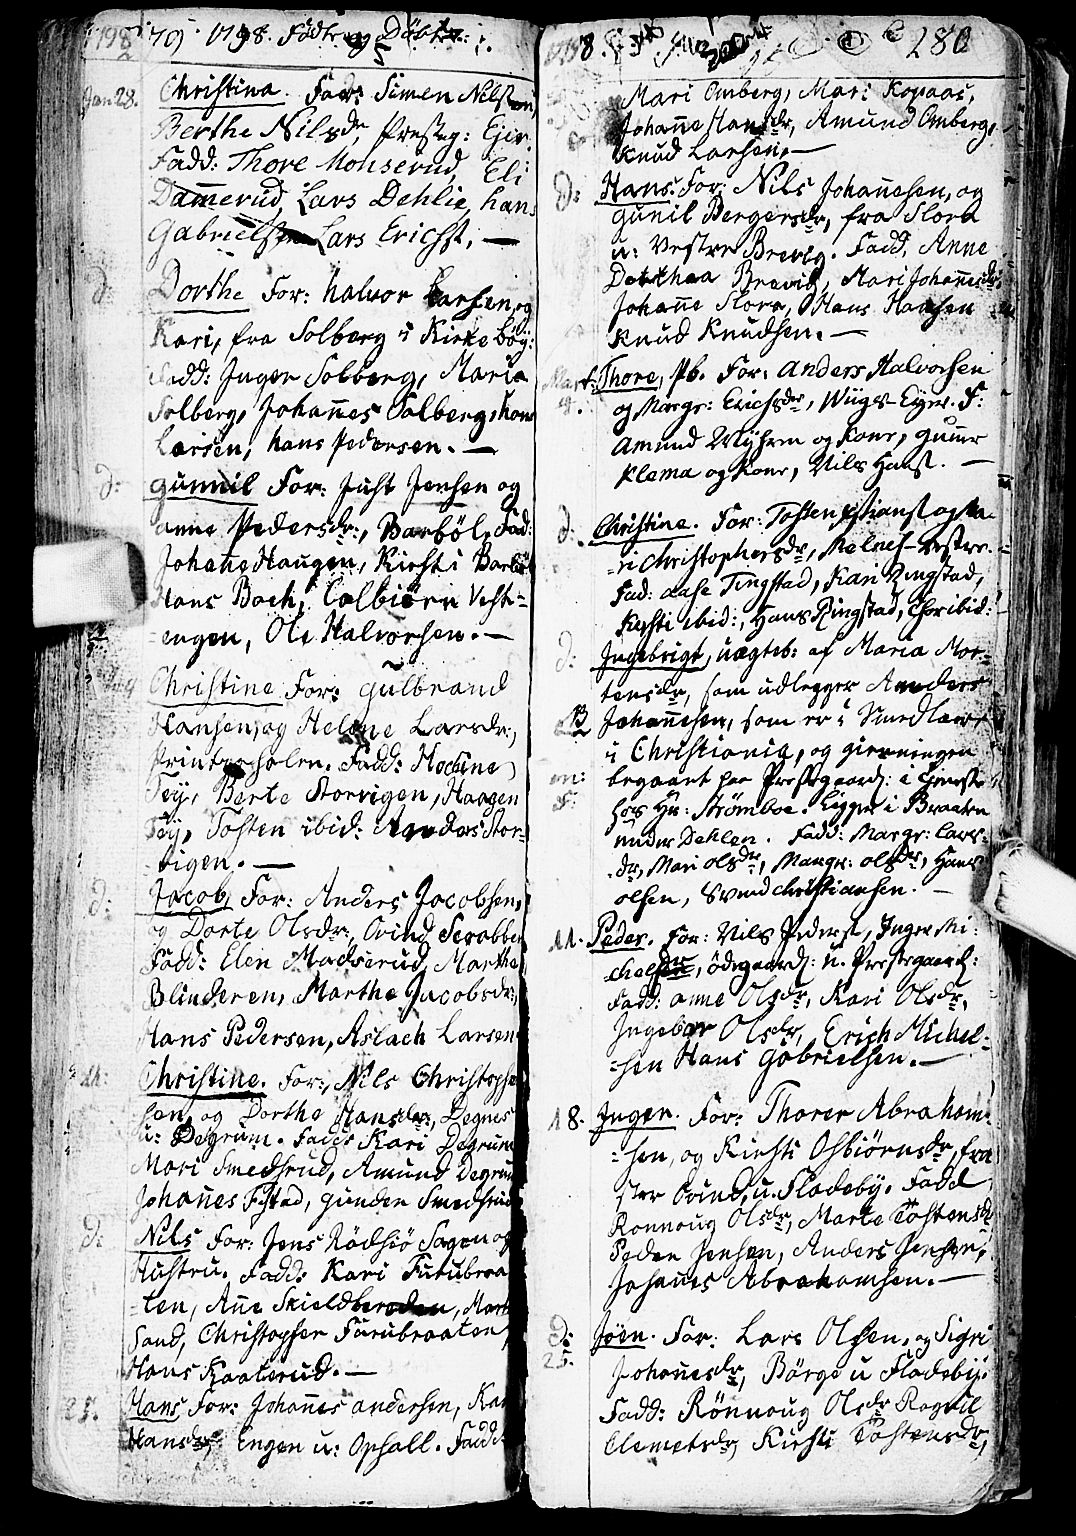 1798
79. 1798. Fødte og Døbte.
Jan 28. Christina. For: Simen Nilsen,
Berthe Nilsdr, Presteg: Ejer.
Fadd: Thore Monserud, Eli
Dammerud, Lars Dehlie, hans
Gabrielsen Lars Erichs. —
d: Dorthe For: Halvor Larsen, og
Kari, fra Solberg i Kirkebøig:
Fadd: Inger Solberg, Maria
Solberg, Johannes Solberg, hans
Larsen, hans Pedersen. —
d: Gunnil For: Just Jensen og
anne Pedersdr:, Barbøl, Fad:
Johans Haugen, Kirsti Barbøl
Hans Bach, Colbiørn Vest-
-engen, Ole Halvorsen. —
Christine For: Gulbrand
Hansen, og Helene Larsdr,
Printzeholen. Fadd:
Tej, Berte Storvigen, Haagen
Tej, Tosten ibid: Anders Stor-
-vigen. —
d: Jacob, For: Anders Jacobsen,
og Dorte Olsdr:, Ovind
Fadd: Elen Madserud, Marthe
Blinderen, Marthe Jacobsdr:,
Hans Pedersen, Aslach Larsen
Christine. For:, Nils Christophe
sen, og Dorthe Hansdr:, Degnes
u: Degrum. Fadd: Kari Degrum
Mari Smedsrud, Amund Degrum
Johannes Fistad, Gunder Smedsrud
d: Nils For: Jens Rødsiø Sagen og
Hustru. Fadd: Kari Furubraa
-ten, Ane Skieldbereden, Mart
Sand, Christopher Furubraaten,
Hans Kaaterud. —
25. Hans For: Johannes andersen, Kar
Hansdr:, Engen u: Ophall. Fadd:
1798. 280
Mari Omberg, Mari Kopaas,
Johanne Hansdr, Amund Omberg,
Knud Larsen, —
d: Hans. For: Nils Johannesen, og
Gunil Bergersdr, fra Flora
u: Vestre Brevig. Fadd. Anne
Dorthea Brevik, Mari Johannesdr,
Johanne Flora, Hans Hansen
Knud Knudsen. —
Mart: Thore, Pb. For: Anders Halvorsen
og Margr: Erichsdr, Wiigs-Eyer. F:
Amund Wiisern og Kone, Guner
Klema og Kone, Nils Hans. —
d: Christine. For: Tosten
-ri Christophersdr, Melnes-vestre.
Fad: Aase Tingstad, Kari Ringstad,
Kirsti ibid:, Hans Ringstad, Thor ibid:
d: Ingebrigt, uægteb: af Maria Mor-
tensdr, som udlegger Anders
Johannesen, som er i Smedlære
i Christiania, og gierningen
begaaet paa Prestegaard: e tieneste
hos Hr: Strømboe. Ligger i Braaten
under Dehlen. Fadd: Margr: Lars-
dr, Mari Olsdr, Margr: Olsdr, Hans
Olsen, Svend Christiansen. —
11. Peder. For: Nils Peders, Inger Mi-
chelsdr, Ødegaard: u. Prestegaard:
Fadd: anne Olsdr, Kari Olsdr,
Ingebor Olsdr, Erich Michel-
-sen Hans Gabrielsen. —
18. Inger. For: Thorer Abraham-
-sen, og Kirsti Osbiørnsdr, fra
Ovind, u. Fladeby. Fadd
Ronnoug Olsdr, Marte Tostensdr
Peder Jensen, Anders Jensen,
Johannes Abrahamsen. —
d: 25. Joen. For: Lars Olsen, og Sigri
Johannesdr, Børge u Fladeby.
Fadd: Rønnoug Olsdr Ragnil
Clemetsdr, Kirsti Tostensdr,